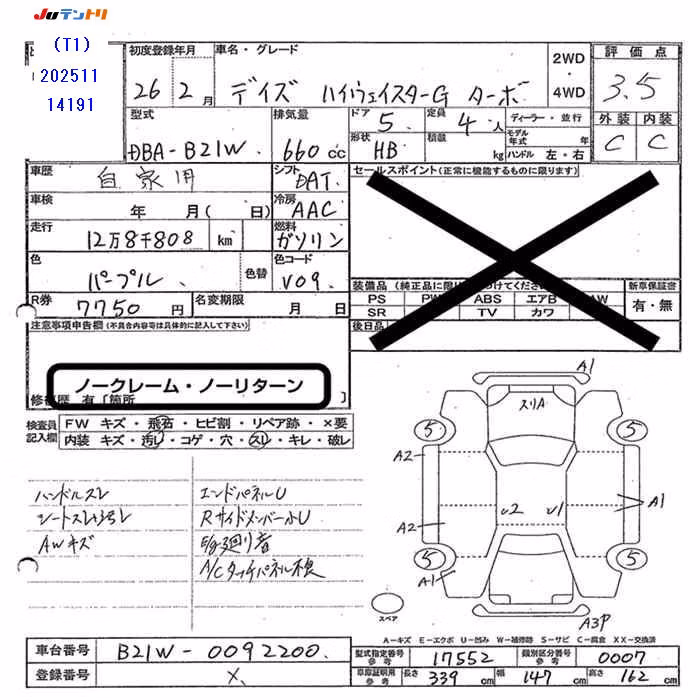 JUテントリ
(T1)
202511
14191
初度登録年月
車名・グレード
26 2月
デイズ ハイウェイスターG ターボ
2WD
・
4WD
評価点
3.5
型式
DBA-B21W
排気量
660cc
ドア
5
定員
4人
形状
HB
積載
kg
ディーラー・並行
モデル年式 年
ハンドル 左・右
外装 内装
C C
車歴
自家用
シフト
DAT
セールスポイント(正常に機能するものに限ります)
車検
年 月( 日)
冷房
AAC
走行
12万8千808 km
燃料
ガソリン
色
パープル
色替
色コード
V09
装備品(純正品に限り
つけてください)
新車保証書
PS PW ABS エアB AW
SR TV カワ
有・無
R券
7750円
名変期限
月 日
後日品
注意事項申告欄(不具合内容等は具体的に記入して下さい)
ノークレーム・ノーリターン
修復歴 有〔箇所 〕
検査員記入欄
FW キズ・飛石・ヒビ割・リペア跡・×要
内装 キズ・汚れ・コゲ・穴・スレ・キレ・破レ
ハンドルスレ
エンドパネルU
Rサイドメンバー小U
AWキズ
A/Cタッチパネル不良
A1
スリA
5 5
A2
A1
U2 U1
A2
5 5
A1
スペア
A3P
A-キズ E-エクボ U-凹み W-補修跡 S-サビ C-腐食 XX-交換済
車台番号
B21W-0092200
登録番号
X
型式指定番号
参考
17552
類別区分番号
参考
0007
車庫証明用
参考
長さ 339cm 幅 147cm 高さ 162cm